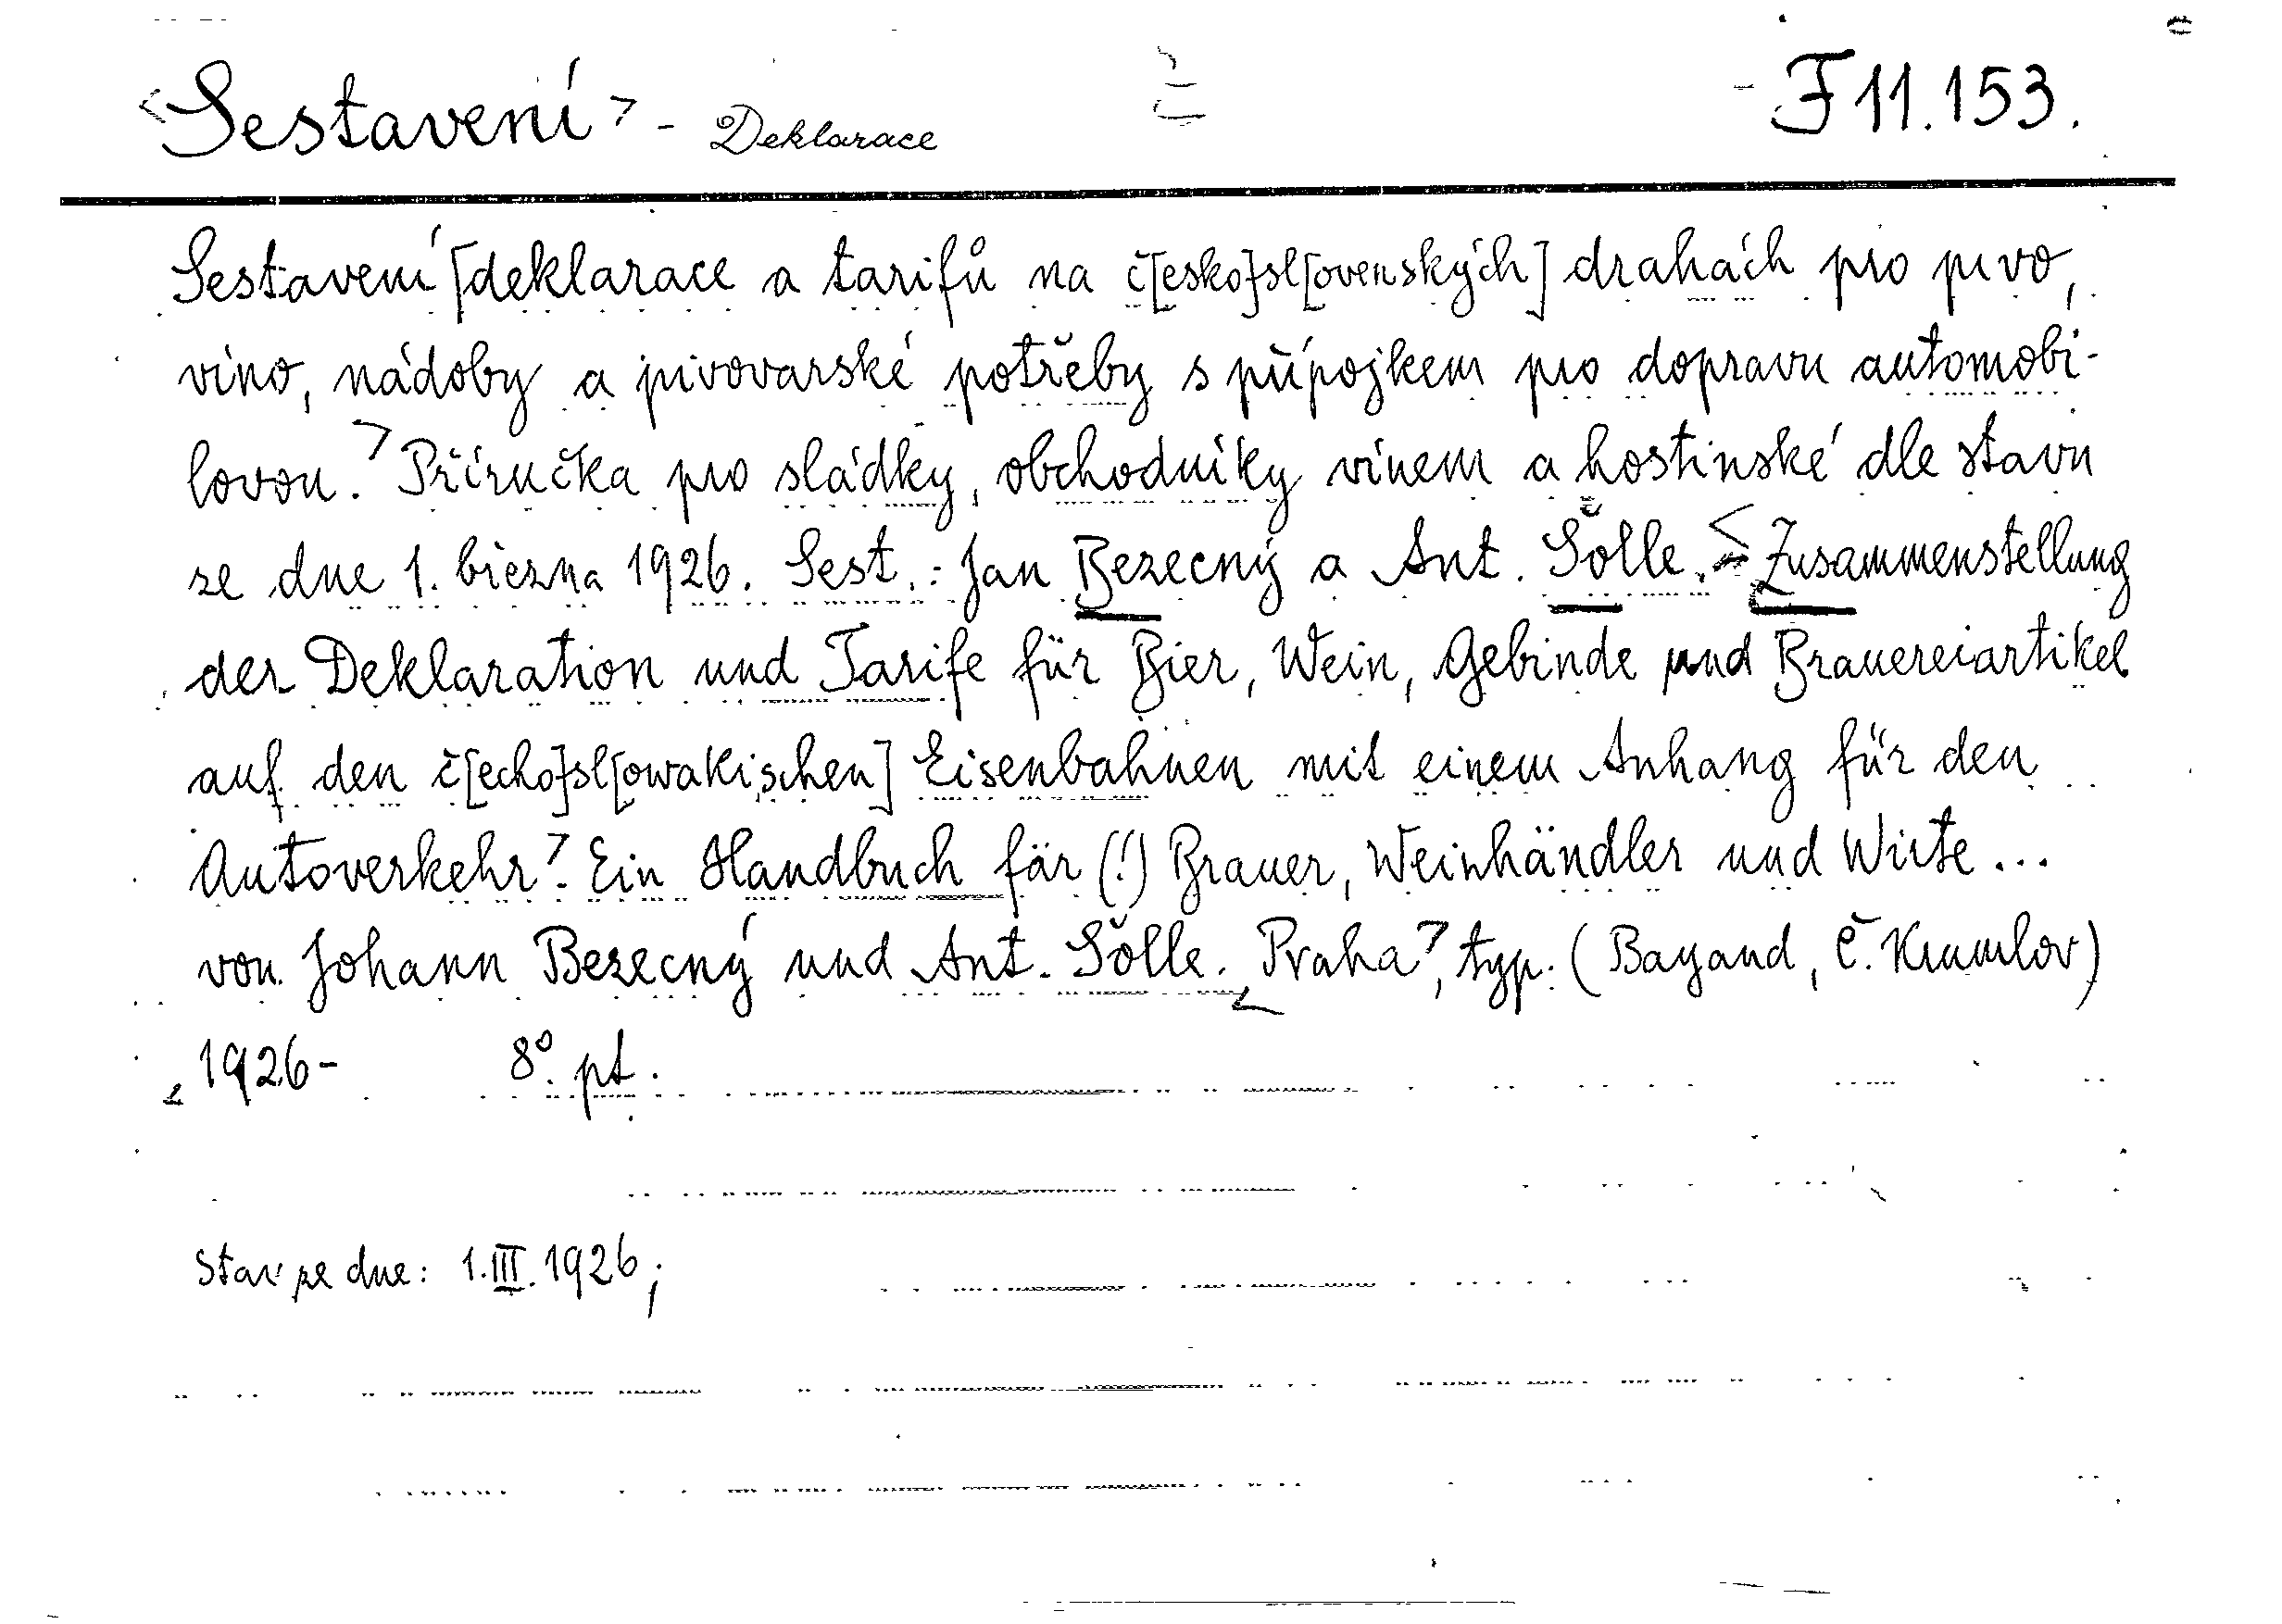 <Sestavení> - Deklarace F 11.153.
Sestavení [deklarace a tarifů na č[esko]sl[ovenských] drahách pro pivo,
víno, nádoby a pivovarské potřeby s přípojkem pro dopravu automobi-
lovou.> Příručka pro sládky, obchodníky vínem a hostinské dle stavu
ze dne 1. března 1926. Sest.: Jan Bezecný a Ant. Šolle. <= Zusammenstellung
der Deklaration und Tarife für Bier, Wein, Gebinde und Brauereiartikel
auf den č[echo]sl[owakischen] Eisenbahnen mit einem Anhang für den
Autoverkehr>. Ein Handbuch fär (!) Brauer, Weinhändler und Wirte...
von Johann Bezecný und Ant. Šolle. <Praha>, typ. (Bayand, Č. Krumlov)
1926- 8°. pt.
Stav ze dne: 1.III.1926;